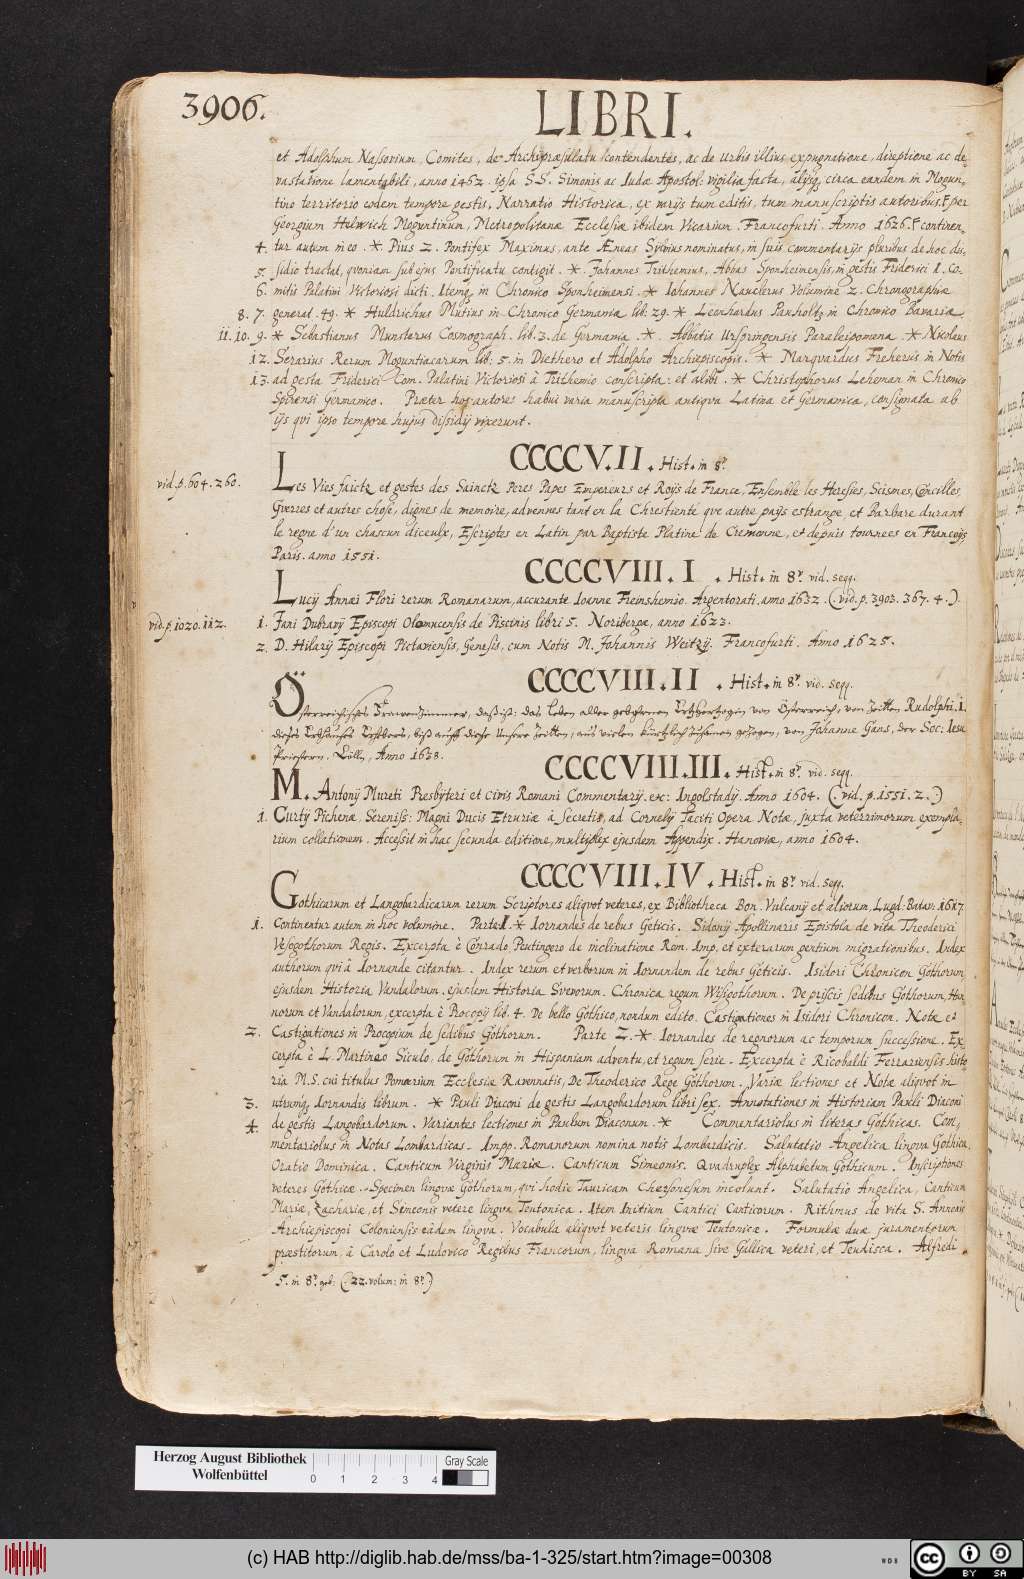 3906.
LIBRI.
et Adolphum Nassovium, Comites, de Archipræsulatu contendentes, ac de Urbis illius expugnatione, direptione ac de
vastatione lamentabili, anno 1462. ipsa S.S. Simonis ac Iudæ Apostol: vigilia facta, alijsq, circa eandem in Mogun,
tino territorio eodem tempore gestis, Narratio Historica, ex varijs tum editis, tum manuscriptis autoribus, per
Georgium Helwich Moguntinum, Metropolitanæ Ecclesiæ ibidem Vicarium. Francofurti. Anno 1626. continen,
4. tur autem in eo. * Pius 2. Pontifex Maximus, ante Æneas Sylvius nominatus, in suis commentarijs pluribus de hoc dis,
5. sidio tractat, quoniam sub ejus Pontificatu contigit. * Johannes Trithemius, Abbas Sponheimensis, in gestis Friderici I. Co,
6. mitis Palatini Victoriosi dicti. Itemq, in Chronico Sponheimensi. * Iohannes Nauclerus Volumine 2. Chronographiæ
8. 7. generat. 49. * Huldrichus Mutius in Chronico Germaniæ lib. 29. * Leonhardus Pauholtz in Chronico Bavariæ
11. 10. 9. * Sebastianus Munsterus Cosmograph. lib. 3. de Germania. * Abbatis Urspringensis Paraleipomena. * Nicolaus
12. Serarius Rerum Moguntiacarum lib: 5. in Diethero et Adolpho Archiepiscopis. * Marquardus Freherus in Notis
13. ad gesta Friderici Com. Palatini Victoriosi à Trithemio conscripta: et alibi. * Christophorus Leheman in Chronico
Spirensi Germanico. Præter hos autores habui varia manuscripta antiqua Latina et Germanica, consignata ab
ijs qui ipso tempore hujus dissidij vixerunt.
CCCCV.II. Hist. in 8º.
vid. p. 604. 260.
Les Vies faictz et gestes des Sainctz Peres Papes Empereurs et Roys de France, Ensemble les Heresies, Scismes, Concilles,
Guerres et autres chose, dignes de memoire, advenues tant en la Chrestiente que autre pays estrange, et Barbare durant
le regne d'un chascun diceulx, Escriptes en Latin par Baptiste Platine de Cremonne, et depuis tournees en Francoys,
Paris. anno 1551.
CCCCVIII. I. Hist. in 8º. vid. seqq.
Lucij Annæi Flori rerum Romanarum, accurante Ioanne Freinshemio. Argentorati. anno 1632. (vid. p. 3903. 367. 4.)
vid. p. 1020. 112.
1. Jani Dubravij Episcopi Olomucensis de Piscinis libri 5. Noribergæ, anno 1623.
2. D. Hilarij Episcopi Pictaviensis, Genesis, cum Notis M. Johannis Weitzij. Francofurti. Anno 1625.
CCCCVIII. II. Hist. in 8º. vid. seqq.
Österreichisches Frawenzimmer, daß ist: das Leben aller gebohrnen Ertzhertzogin von Österreich, von Zeitten Rudolphi. I.
dieses Ertzhauses Stiffters, biß auff diese Unsere Zeitten, aus vielen kürtzlich zusamen gezogen, von Johanne Gans, der Soc: Iesu
Priestern. Cölln, Anno 1638.
CCCCVIII. III. Hist. in 8º. vid. seqq.
M. Antonij Mureti Presbyteri et civis Romani Commentarij. etc: Ingolstadij. Anno 1604. (vid. p. 1551. 2.)
1. Curtij Pichenæ, Sereniss: Magni Ducis Etruriæ à Secretis, ad Cornelij Taciti Opera Notæ, juxta veterrimorum exempla,
rium collationem. Accessit in hac secunda editione, multiplex ejusdem Appendix. Hanoviæ, anno 1604.
CCCCVIII. IV. Hist. in 8º. vid. seqq.
Gothicarum et Langobardicarum rerum Scriptores aliquot veteres, ex Bibliotheca Bon. Vulcanij et aliorum. Lugd: Batav: 1617.
1. Continentur autem in hoc volumine. Parte I. * Iornandes de rebus Geticis. Sidonij Apollinaris Epistola de vita Theoderici
Vesogothorum Regis. Excerpta è Conrado Peutingero de inclinatione Rom. Imp. et exterarum gentium migrationibus. Index
authorum qui à Iornande citantur. Index rerum et verborum in Iornandem de rebus Geticis. Isidori Chronicon Gothorum,
ejusdem Historia Vandalorum. ejusdem Historia Svevorum. Chronica regum Wisigothorum. De priscis sedibus Gothorum, Hun
norum et Vandalorum, excerpta è Procopij lib. 4. De bello Gothico, nondum edito. Castigationes in Isidori Chronicon. Notæ et
2. Castigationes in Procopium de sedibus Gothorum. Parte 2. * Iornandes de regnorum ac temporum successione. Ex,
cerpta è L. Martinæo Siculo, de Gothorum in Hispaniam adventu, et regum serie. Excerpta è Ricobaldi Ferrariensis histo
ria M.S. cui titulus Pomœrium Ecclesiæ Ravennatis, De Theoderico Rege Gothorum. Variæ lectiones et Notæ aliquot in
3. utrumq, Iornandis librum. * Pauli Diaconi de gestis Langobardorum libri sex. Annotationes in Historiam Pauli Diaconi
4. de gestis Langobardorum. Variantes lectiones in Paulum Diaconum. * Commentariolus in literas Gothicas. Com,
mentariolus in Notas Lombardicas. Impp. Romanorum nomina notis Lombardicis. Salutatio Angelica lingua Gothica.
Oratio Dominica. Canticum Virginis Mariæ. Canticum Simeonis. Quadruplex Alphabetum Gothicum. Inscriptiones
veteres Gothicæ. Specimen linguæ Gothorum, qui hodie Tauricam Chersonesum incolunt. Salutatio Angelica, Canticum
Mariæ, Zachariæ, et Simeonis vetere lingua Teutonica. Item Initium Cantici Canticorum. Rithmus de vita S. Annonis
Archiepiscopi Coloniensis eâdem lingua. Vocabula aliquot veteris linguæ Teutonicæ. Formulæ duæ juramentorum
præstitorum, à Carolo et Ludovico Regibus Francorum, lingua Romana sive Gallica veteri, et Teudisca. Alfredi
5. in 8º. geb: (22. volum: in 8º.)
Herzog August Bibliothek
Wolfenbüttel
0 1 2 3 4
Gray Scale
(c) HAB http://diglib.hab.de/mss/ba-1-325/start.htm?image=00308
WDB
cc BY SA